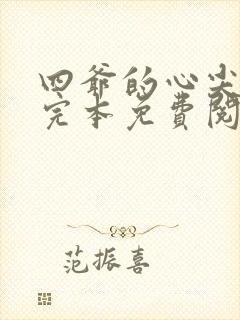 四爷的心尖
完本免費閱
范振喜